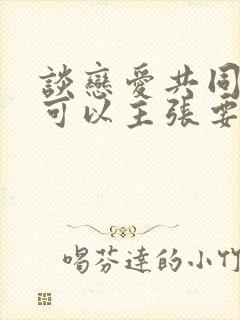 談戀愛共同
可以主張要
喝芬達的小竹